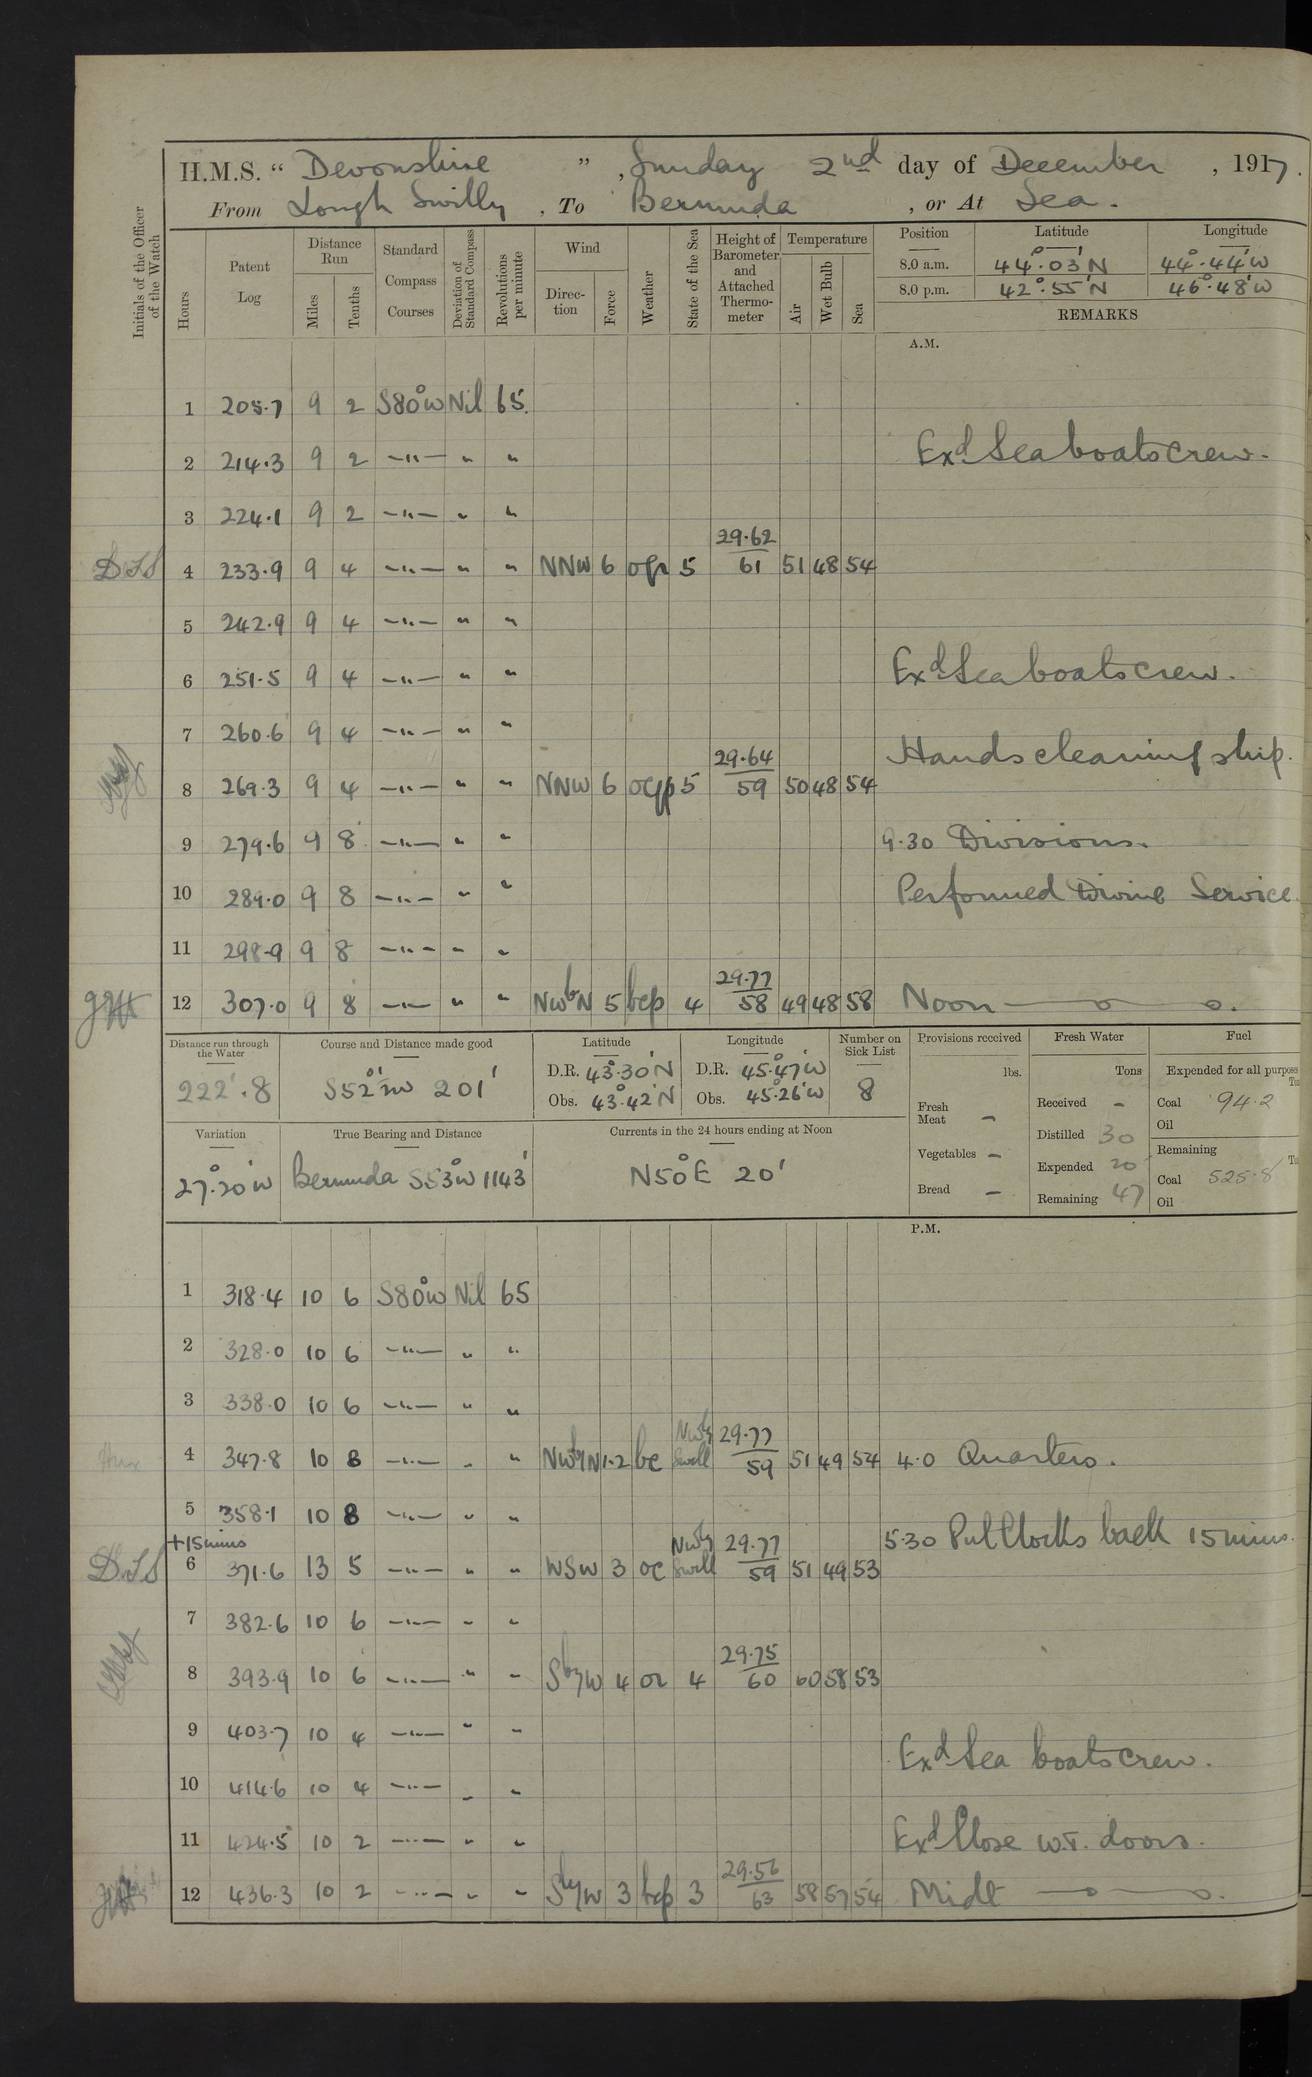 H.M.S. " Devonshire ", Sunday 2nd day of December, 1917.
From Lough Swilly, To Bermuda, or At Sea.
Initials of the Officer of the Watch
Hours
Patent Log
Distance Run
Miles
Tenths
Standard Compass Courses
Deviation of Standard Compass
Revolutions per minute
Wind
Direction
Force
Weather
State of the Sea
Height of Barometer and Attached Thermometer
Temperature
Air
Wet Bulb
Sea
Position Latitude Longitude
8.0 a.m. 44°.03'N 44°.44'W
8.0 p.m. 42°.55'N 46°.48'W
REMARKS
A.M.
1 205.7 9 2 S80°W Nil 65.
2 214.3 9 2 —"— " " Exd Sea boats crew.
3 224.1 9 2 —"— " "
29.62
4 233.9 9 4 —"— " " NNW 6 5 61 51 48 54
5 242.9 9 4 —"— " "
6 251.5 9 4 —"— " " Exd Sea boats crew.
7 260.6 9 4 —"— " "
Hands cleaning ship.
29.64
8 269.3 9 4 —"— " " NNW 6 5 59 50 48 54
9 279.6 9 8 —"— " " 9.30 Divisions.
10 289.0 9 8 —"— " " Performed Divine Service.
11 298.9 9 8 —"— " "
29.77
12 307.0 9 8 —"— " " NWbN 5 bcp 4 58 49 48 58 Noon
Distance run through the Water
222'.8
Course and Distance made good
S52°W 201'
Latitude
D.R. 43°.30'N
Obs. 43°.42'N
Longitude
D.R. 45°.47'W
Obs. 45°.26'W
Number on Sick List
8
Provisions received
lbs.
Fresh Meat –
Vegetables –
Bread –
Fresh Water
Tons
Received –
Distilled 30
Expended 20
Remaining 47
Fuel
Expended for all purposes
Coal 94.2
Oil
Remaining
Coal 525.8
Oil
Variation
27°.20'W
True Bearing and Distance
Bermuda S53°W 1143'
Currents in the 24 hours ending at Noon
N50°E 20'
P.M.
1 318.4 10 6 S80°W Nil 65
2 328.0 10 6 —"— " "
3 338.0 10 6 —"— " "
29.77
4 347.8 10 8 —"— " " NWbyN 1.2 bc NWly Swell 59 51 49 54 4.0 Quarters.
5 358.1 10 8 —"— " "
5.30 Put Clocks back 15 mins.
+15 mins
29.77
D.S.S. 6 371.6 13 5 —"— " " WSW 3 oc NWly Swell 59 51 49 53
7 382.6 10 6 —"— " "
29.75
8 393.9 10 6 —"— " " SbyW 4 or 4 60 60 58 53
9 403.7 10 4 —"— " "
Exd Sea boats crew.
10 414.6 10 4 —"— " "
11 424.5 10 2 —"— " " Exd Close W.T. doors.
29.56
12 436.3 10 2 —"— " " SbyW 3 bcp 3 63 58 57 54 Midt